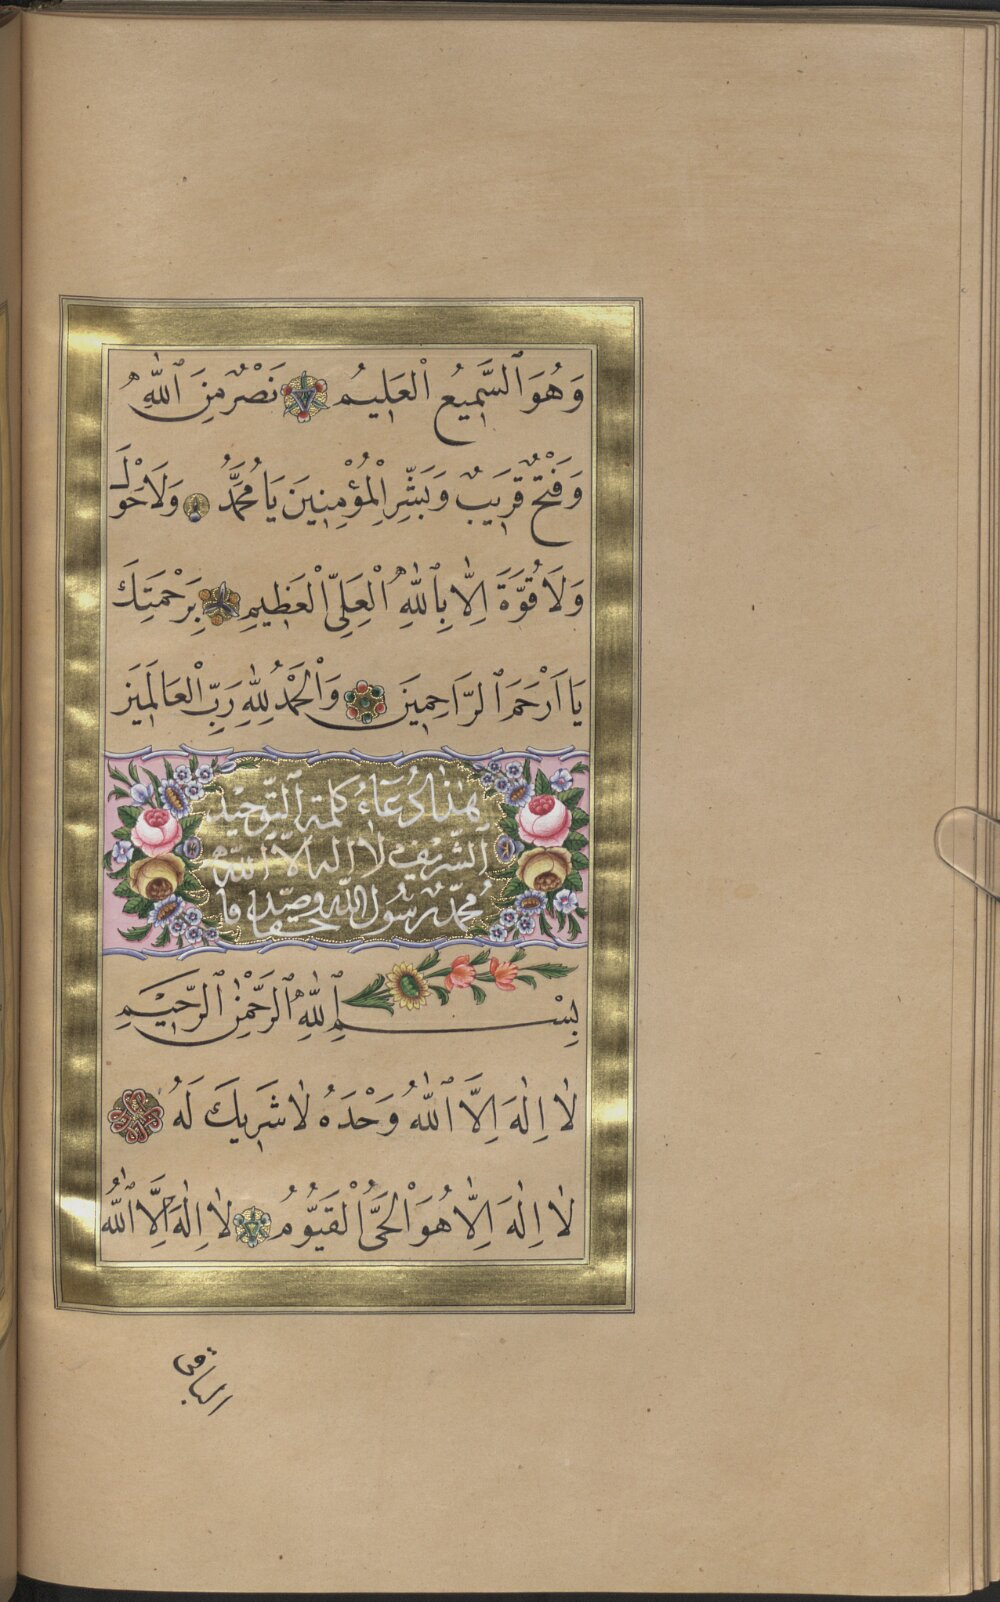 وَهُوَ ٱلسَّمِيعُ ٱلْعَلِيمُ نَصْرٌ مِنَ ٱللّٰهِ
وَفَتْحٌ قَرِيبٌ وَبَشِّرِ ٱلْمُؤْمِنِينَ يَا مُحَمَّدُ وَلَا حَوْلَ
وَلَا قُوَّةَ اِلَّا بِٱللّٰهِ ٱلْعَلِىِّ ٱلْعَظِيمِ بِرَحْمَتِكَ
يَا اَرْحَمَ ٱلرَّاحِمِينَ وَٱلْحَمْدُ لِلّٰهِ رَبِّ ٱلْعَالَمِينَ
هٰذَا دُعَاءُ كلمة ٱلتَّوْحِيد
ٱلشَّرِيف لا اله الا ٱللّٰه
مُحَمَّدٌ رَسُولُ ٱللّٰه
بِسْمِ ٱللّٰهِ ٱلرَّحْمٰنِ ٱلرَّحِيمِ
لَا اِلٰهَ اِلَّا ٱللّٰهُ وَحْدَهُ لَا شَرِيكَ لَهُ
لَا اِلٰهَ اِلَّا هُوَ ٱلْحَىُّ ٱلْقَيُّومُ لَا اِلٰهَ اِلَّا ٱللّٰهُ
الباقى